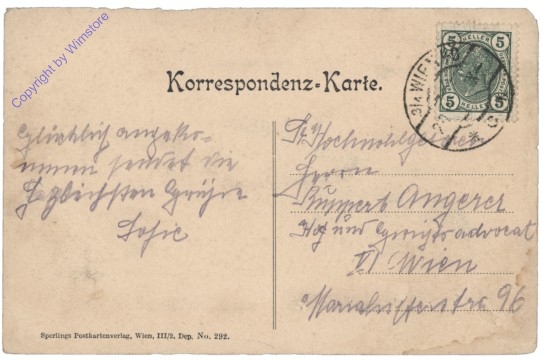 Copyright by Winstore
Korrespondenz-Karte.
5 HELLER 5
3/4 WIEN
Glücklich angeko-
mmen sendet die
herzlichsten Grüße
Sofie
Sr Hochwohlgeboren
Herrn
Ruppert Angerer
Hof und Gerichtsadvocat
VI Wien
Mariahilferstrasse 96
Sperlings Postkartenverlag, Wien, III/3, Dep. No. 292.